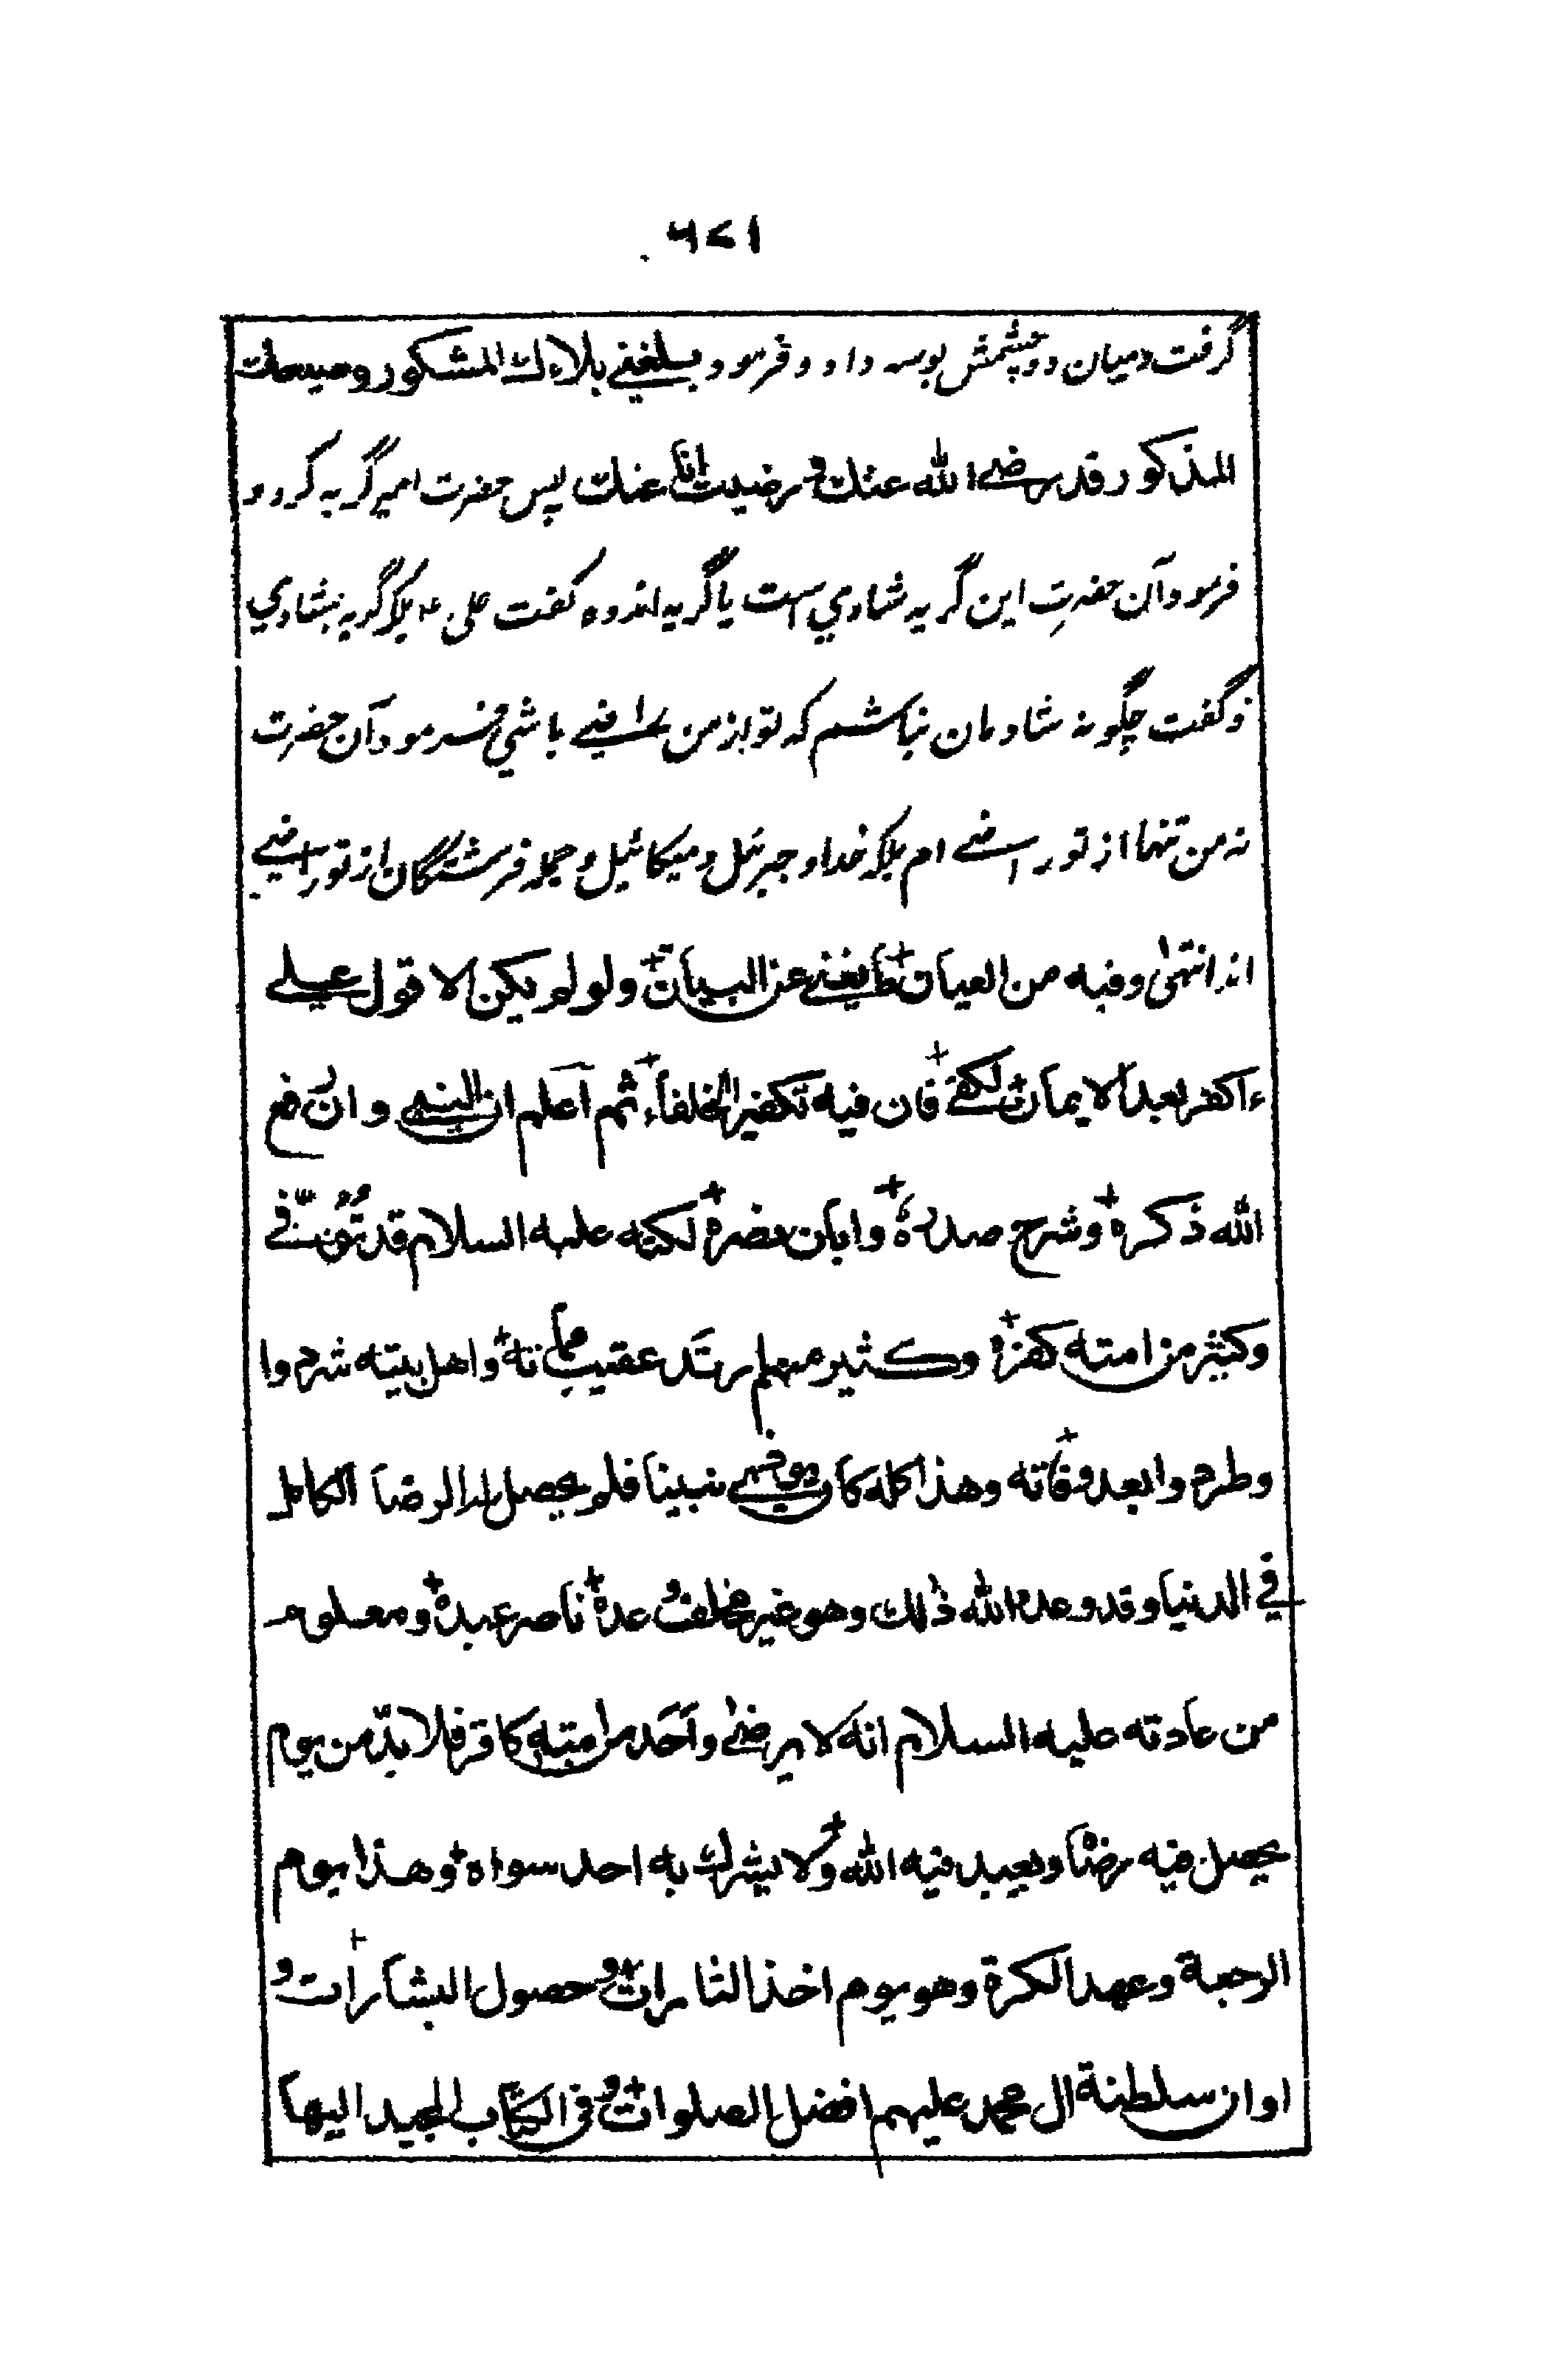 ۶۷۱
گرفت و میان دو چشمش بوسه داد و فرمود بسلغنی بلاءك المشكور و صیعك
المذكور قد رضی الله عنك و رضیت انا عنك پس حضرت امیر گریه كرد و
فرمود آن حضرت این گریه شادی است یا گریه اندوه گفت علی ء بلکه گریه بشادی
و گفت چگونه شادمان نباشم که تو از من راضی باشی فرمود آن حضرت
نه من تنها از تو راضی ام بلکه خدا و جبرئیل و میکائیل و جمله فرشتگان از تو راضی
اند انتهی وفیه من العیان ما یغنی عن البیان ولو لم یكن الا قول علی
ءاكفر بعد الایمان لكفی فان فیه تكفیر الخلفاء ثم اعلم ان النبی وان رفع
الله ذكره وشرح صدره وابان نصره لكنه علیه السلام قد توفی
وكثیر من امته كفره وكثیر منهم ارتد عقیب مماته واهل بیته شردوا
وطردوا بعد وفاته وهذا كله كان یوذی نبینا فلم یحصل له الرضا الكامل
فی الدنیا وقد وعده الله ذلك وهو غیر مخلف وعده ناصر عبده ومعلوم
من عادته علیه السلام انه لا یرضی واحد من امته كافر فلا بد من یوم
یحصل فیه رضاه ویعبد فیه الله ولا یشرك به احد سواه وهذا یوم
الرجعة وعهد الكرة وهو یوم اخذ الثارات وحصول البشارات و
اوان سلطنة ال محمد علیهم افضل الصلوات وفی الكتاب المجید الیها